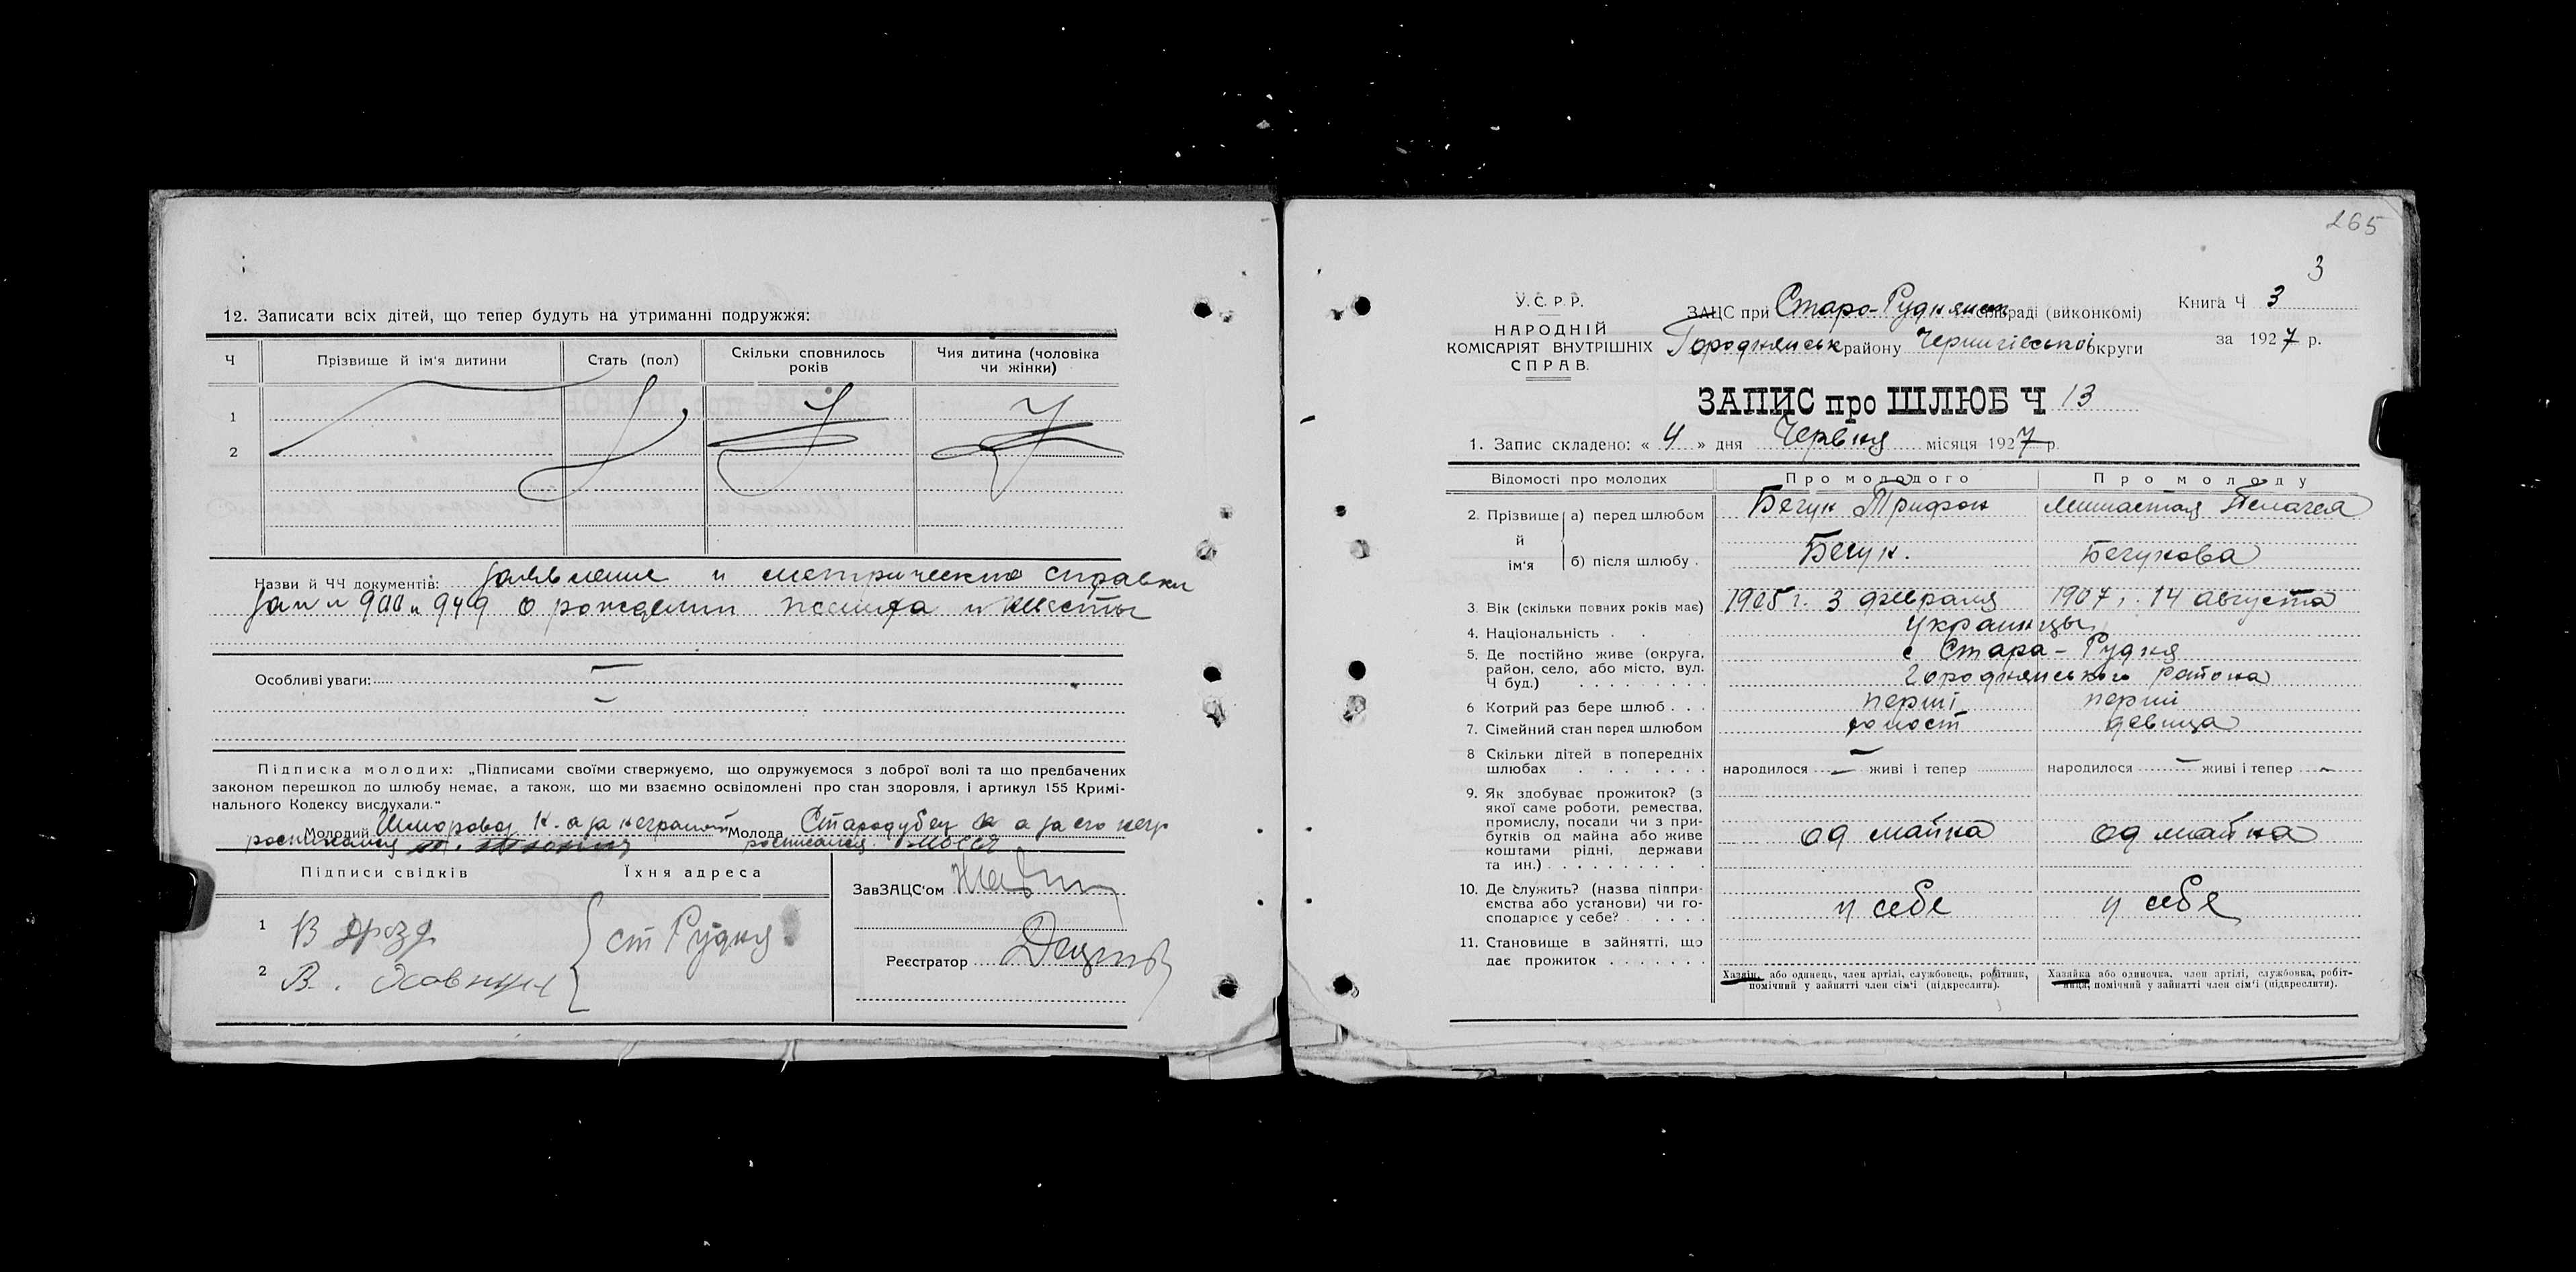 12. Записати всіх дітей, що тепер будуть на утриманні подружжя:
Ч Прізвище й ім'я дитини Стать (пол) Скільки сповнилось років Чия дитина (чоловіка чи жінки)
1
2
Назви й ЧЧ документів: заявление и метрические справки
за № 900 и 949 о рождении жениха и невесты
Особливі уваги: —
—
Підписка молодих: „Підписами своїми стверджуємо, що одружуємося з доброї волі та що предбачених
законом перешкод до шлюбу немає, а також, що ми взаємно освідомлені про стан здоровля, і артикул 155 Кримі-
нального Кодексу вислухали."
Молодий К. а за неграмот Молода Стародубец а за его негр
росписался росписался
Підписи свідків Їхня адреса
1 В Дрозд
2 В.
ст Рудня
ЗавЗАЦС'ом
Реєстратор
265
3
У.С.Р.Р.
НАРОДНІЙ
КОМІСАРІЯТ ВНУТРІШНІХ
СПРАВ.
ЗАЦС при Старо-Руднянск сільраді (виконкомі)
Городнянськ району Чернигівської округи
Книга Ч 3
за 1927 р.
ЗАПИС про ШЛЮБ Ч 13
1. Запис складено: « 4 » дня Червня місяця 1927 р.
Відомості про молодих Про молодого Про молоду
2. Прізвище й ім'я а) перед шлюбом Бегун Трифон Пелагея
б) після шлюбу . Бегун. Бегунова
3. Вік (скільки повних років має) 1905 г. 3 февраля 1907 г. 14 августа
4. Національність . . украинцы
5. Де постійно живе (округа, район, село, або місто, вул. Ч буд.) с Стара-Рудня
Городнянського района
6 Котрий раз бере шлюб . . . перші перші
7. Сімейний стан перед шлюбом холост девица
8 Скільки дітей в попередніх шлюбах народилося — живі і тепер народилося — живі і тепер —
9. Як здобуває прожиток? (з
якої саме роботи, ремества,
промислу, посади чи з при-
бутків од майна або живе
коштами рідні, держави
та ин.) од майна од майна
10. Де служить? (назва підпри-
ємства або установи) чи го-
сподарює у себе? у себе у себе
11. Становище в зайнятті, що
дає прожиток
Хазяїн, або одинець, член артілі, службовець, робітник,
помічний у зайнятті член сім'ї (підкреслити).
Хазяйка або одиночка, член артілі, службовка, робіт-
ниця, помічний у зайнятті член сім'ї (підкреслити).